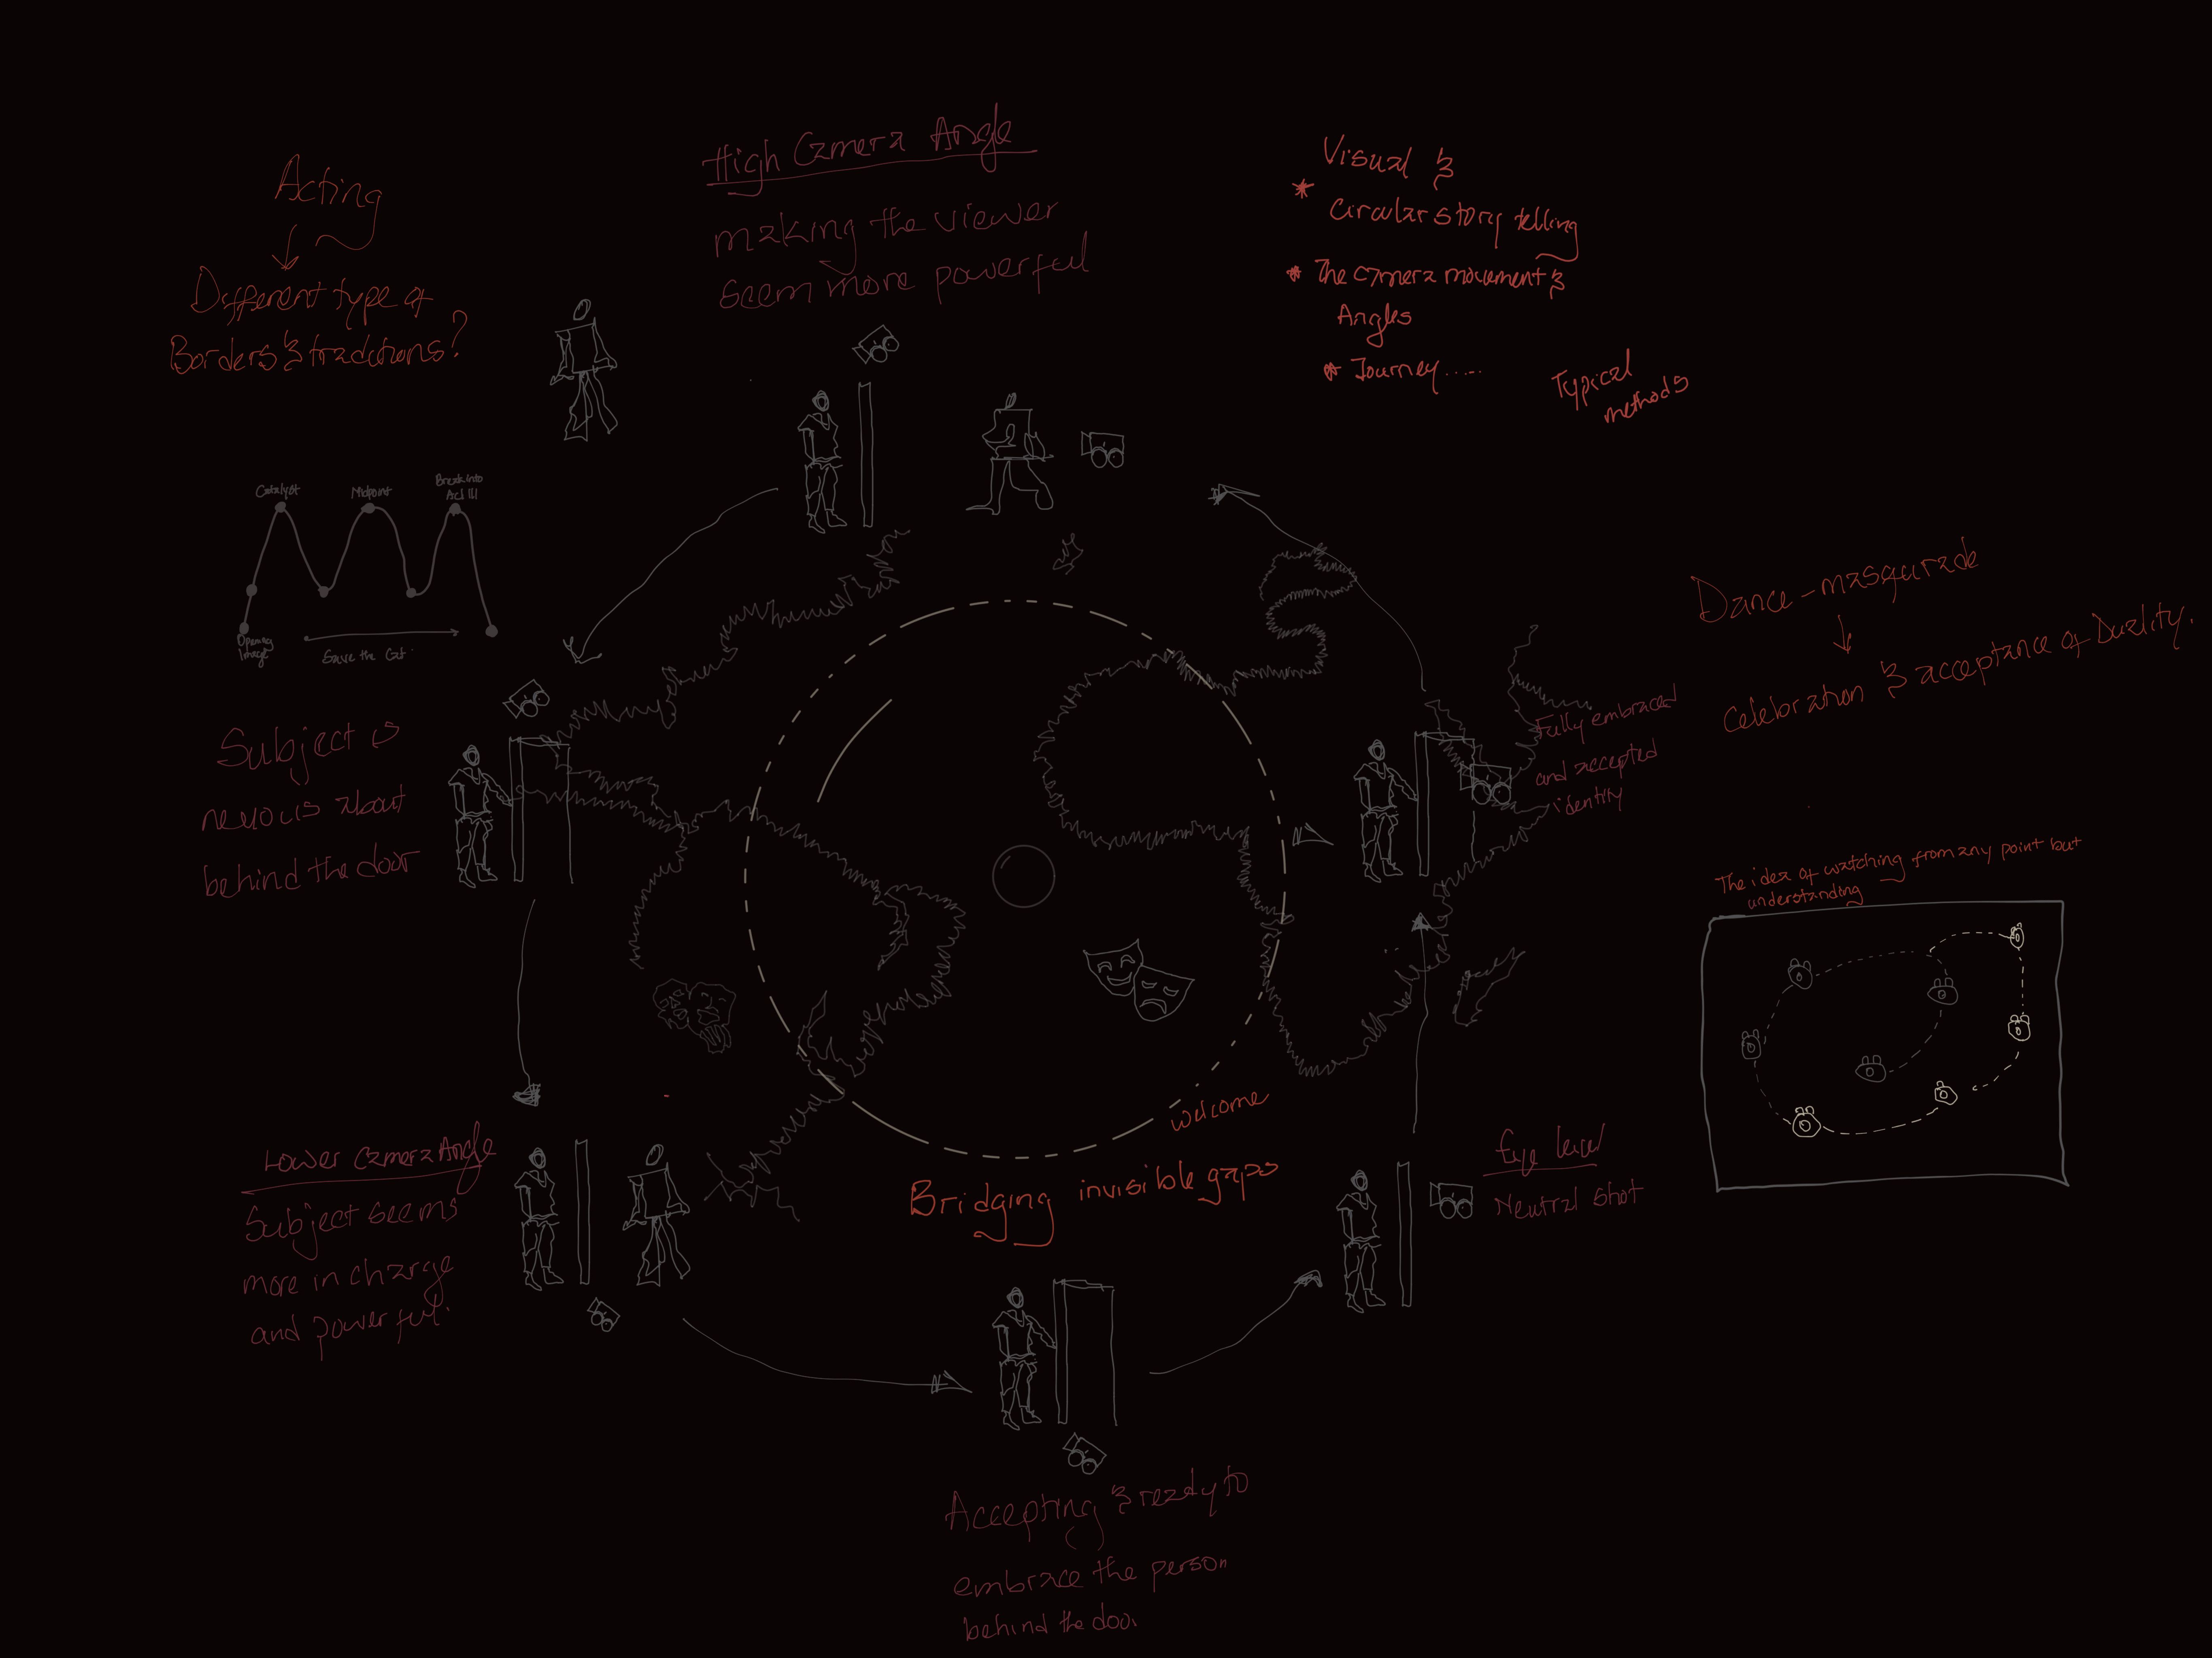 Acting
Different type of
Borders & traditions?
High Camera Angle
making the viewer
seem more powerful
Visual &
* Circular story telling
* The camera movement &
Angles
* Journey.....
Typical
methods
Catalyst
Midpoint
Break into
Act III
Opening
Image
Save the Cat.
Dance - masqurade
Celebration & acceptance of Duality.
Subject is
nervous about
behind the door
Fully embraced
and accepted
identity
The idea of watching from any point but
understanding
welcome
Bridging invisible gaps
Lower Camera Angle
Subject seems
more in charge
and powerful.
Eye level
Neutral Shot
Accepting & ready to
embrace the person
behind the door